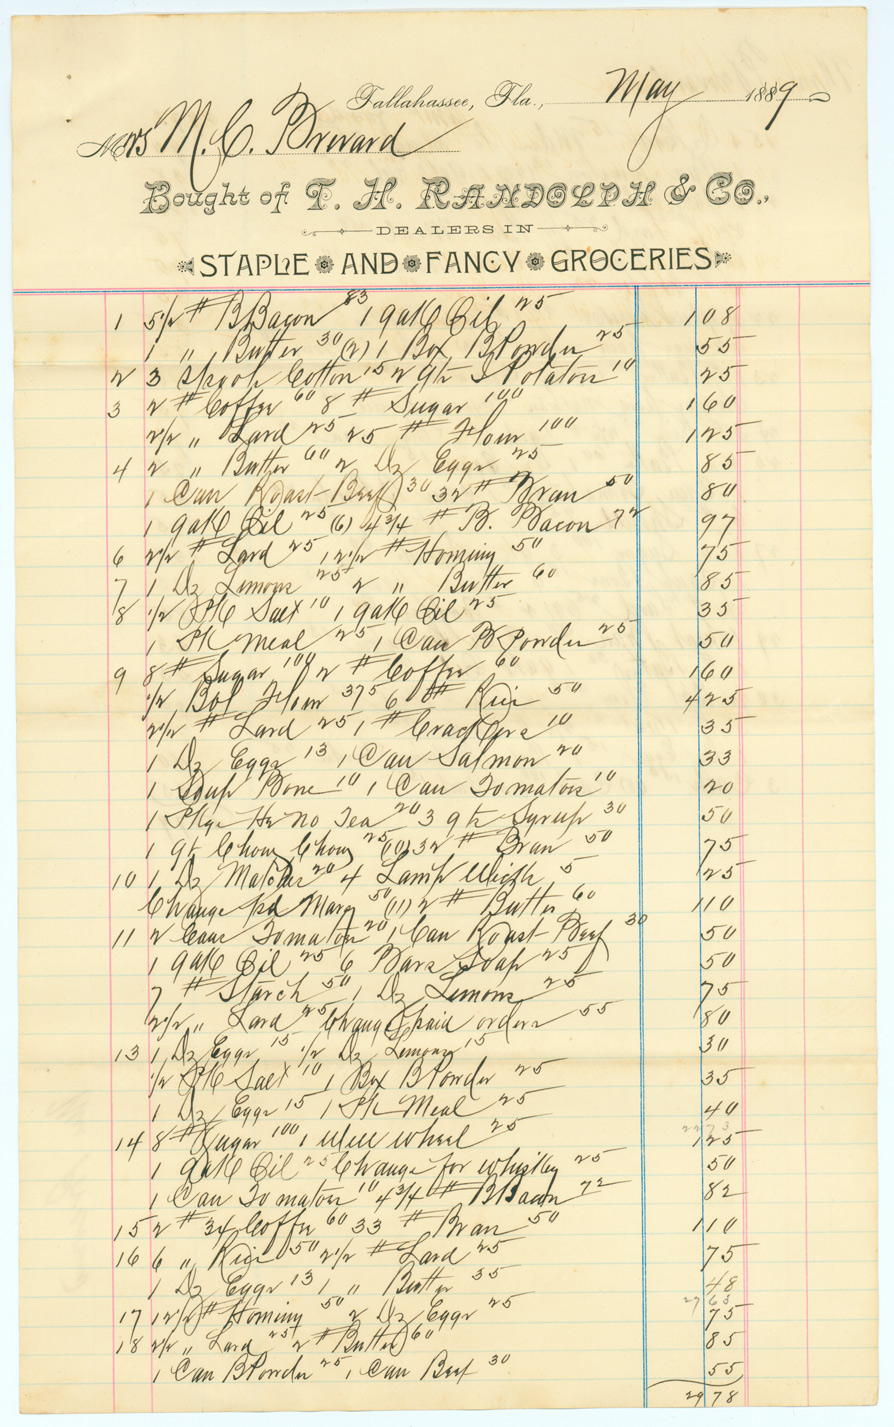 Tallahassee, Fla., May 1889
Mrs M. C. Brevard
Bought of T. H. RANDOLPH & CO.,
DEALERS IN
STAPLE AND FANCY GROCERIES
1 5 1/2 # B Bacon 83 1 gall Oil 25 108
1 " Butter 30 (2) 1 Box B Powder 25 55
2 3 Spools Cotton 15 2 qts I Potatoes 10 25
3 2 # Coffee 60 8 # Sugar 100 160
2 1/2 " Lard 25 25 # Flour 100 125
4 2 " Butter 60 2 Dz Eggs 25 85
1 Can Roast Beef 30 32 # Bran 50 80
1 gall Oil 25 (6) 4 3/4 # B. Bacon 72 97
6 2 1/2 # Lard 25 12 1/2 # Hominy 50 75
7 1 Dz Lemons 25 2 " Butter 60 85
8 1/2 Pk Salt 10 1 gall Oil 25 35
1 Pk Meal 25 1 Can B Powder 25 50
9 8 # Sugar 100 2 # Coffee 60 160
1/2 Bbl Flour 375 6 # Rice 50 425
2 1/2 # Lard 25 1 # Crackers 10 35
1 Dz Eggs 13 1 Can Salmon 20 33
1 Soup Bone 10 1 Can Tomatoes 10 20
1 Pkge He no Tea 20 3 qts Syrup 30 50
1 qt Chow Chow 25 (10) 32 # Bran 50 75
10 1 Dz Matches 20 4 Lamp Wicks 5 25
Change pd Mary 50 (11) 2 # Butter 60 110
11 2 Cans Tomatoes 20 1 Can Roast Beef 30 50
1 gall Oil 25 6 Bars Soap 25 50
7 # Starch 50 1 Dz Lemons 25 75
2 1/2 " Lard 25 Change paid orders 55 80
13 1 Dz Eggs 15 1/2 Dz Lemons 15 30
1/2 Pk Salt 10 1 Box B Powder 25 35
1 Dz Eggs 15 1 Pk Meal 25 40
2273
14 8 # Sugar 100 1 Well wheel 25 125
1 gall Oil 25 Change for whiskey 25 50
1 Can Tomatoes 10 4 3/4 # B Bacon 72 82
15 2 # Coffee 60 33 # Bran 50 110
16 6 " Rice 50 2 1/2 # Lard 25 75
1 Dz Eggs 13 1 " Butter 35 48
2763
17 12 1/2 # Hominy 50 2 Dz Eggs 25 75
18 2 1/2 " Lard 25 2 # Butter 60 85
1 Can B Powder 25 1 Can Beef 30 55
2978